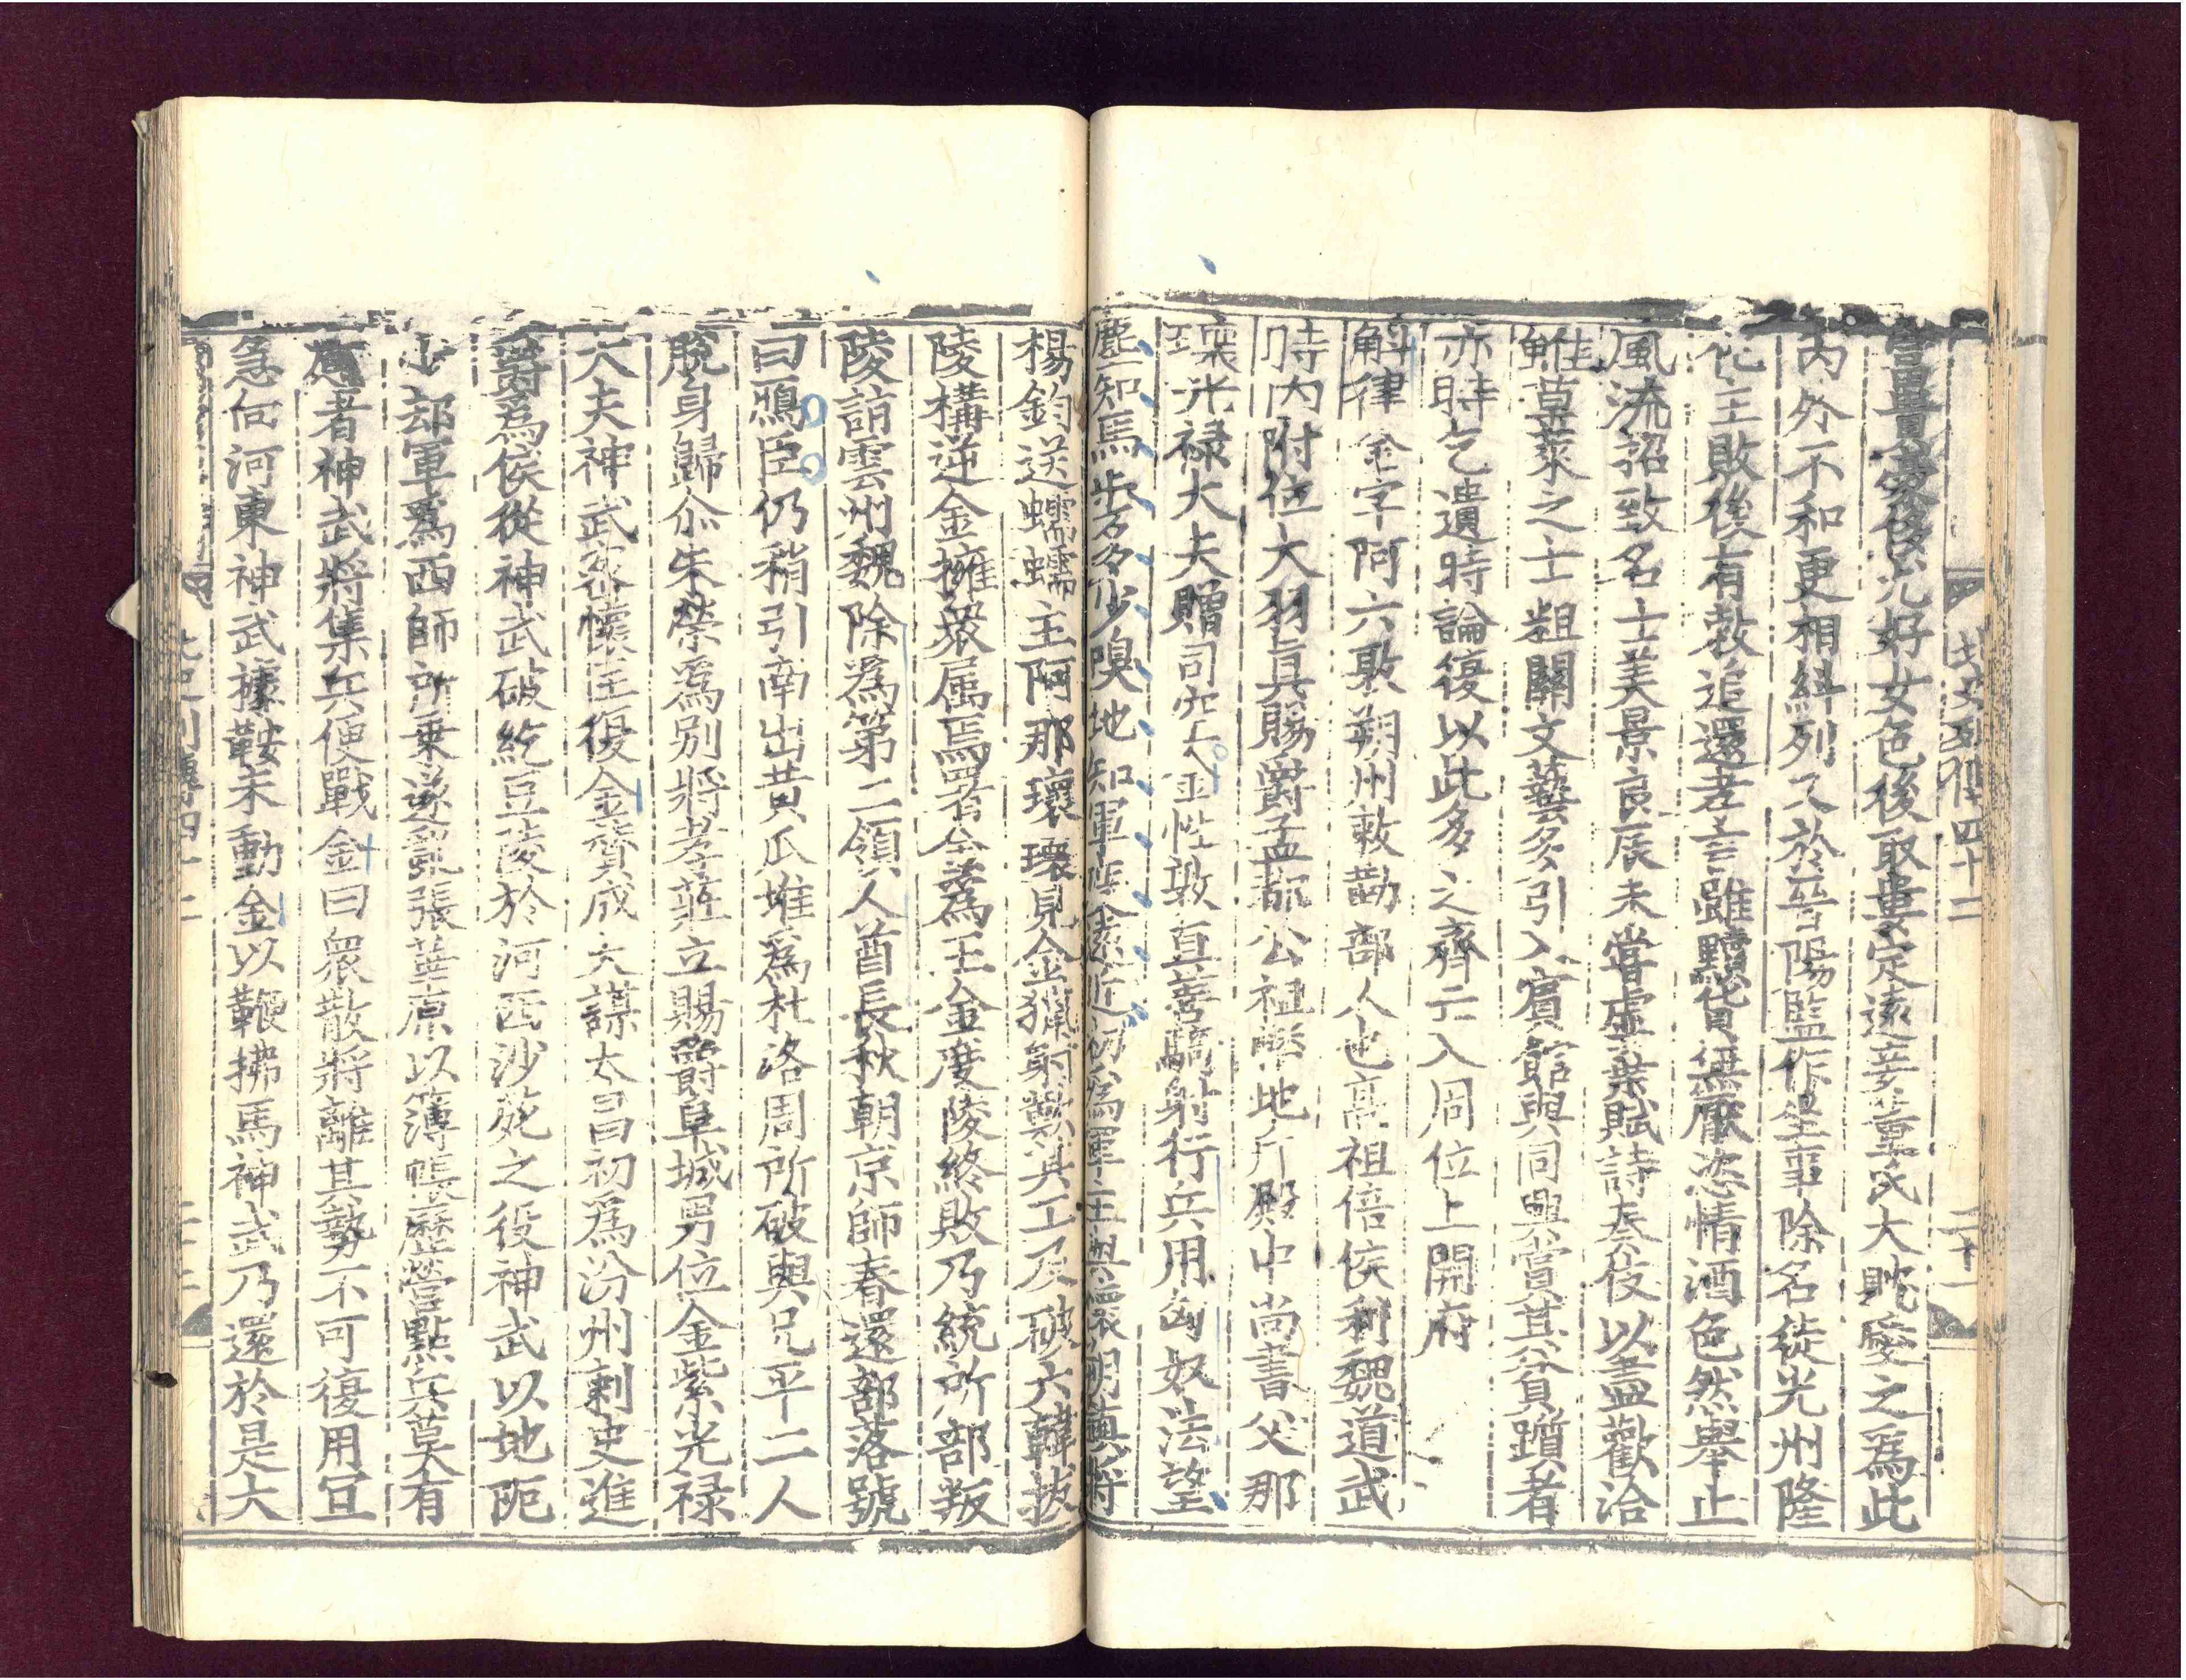 北史列傳四十二 二十一
光好女色後取婁定遠妾董氏大躭愛之爲此
内外不和更相糾列又於晉陽監作坐事除名徒光州隆
化主敗後有敕追還孝言雖黷貨無厭恣情酒色然舉止
風流招致名士美景良辰未嘗虛棄賦詩奏伎以盡歡洽
雖草萊之士粗關文藝多引入賓館與同興賞其貧躓者
亦時乞遺時論復以此多之齊亡入周位上開府
斛律金字阿六敦朔州敕勒部人也高祖倍侯利魏道武
時内附位大羽真賜爵孟都公祖幡地斤殿中尚書父那
瓌光禄大夫贈司空公金性敦直善騎射行兵用匈奴法望
塵知馬步多少嗅地知軍度遠近初爲軍主與懷朔鎮將
楊鈞送蠕蠕主阿那瓌瓌見金獵射歎其工及破六韓拔
陵構逆金擁衆属焉署金爲王金度陵終敗乃統所部叛
陵詣雲州魏除爲第二領人酋長秋朝京師春還部落號
曰鴈臣仍稍引南出黄瓜堆爲杜洛周所破與兄平二人
脫身歸尒朱榮爲別將孝莊立賜爵阜城男位金紫光禄
大夫神武密懷匡復金賛成大謀太昌初爲汾州刺史進
爵爲侯從神武破紇豆陵於河西沙苑之役神武以地阨
少却軍爲西師所乗遂亂張華原以簿帳歷營點兵莫有
應者神武將集兵便戰金曰衆散將離其勢不可復用宜
急向河東神武據鞍未動金以鞭拂馬神武乃還於是大
列傳四十二